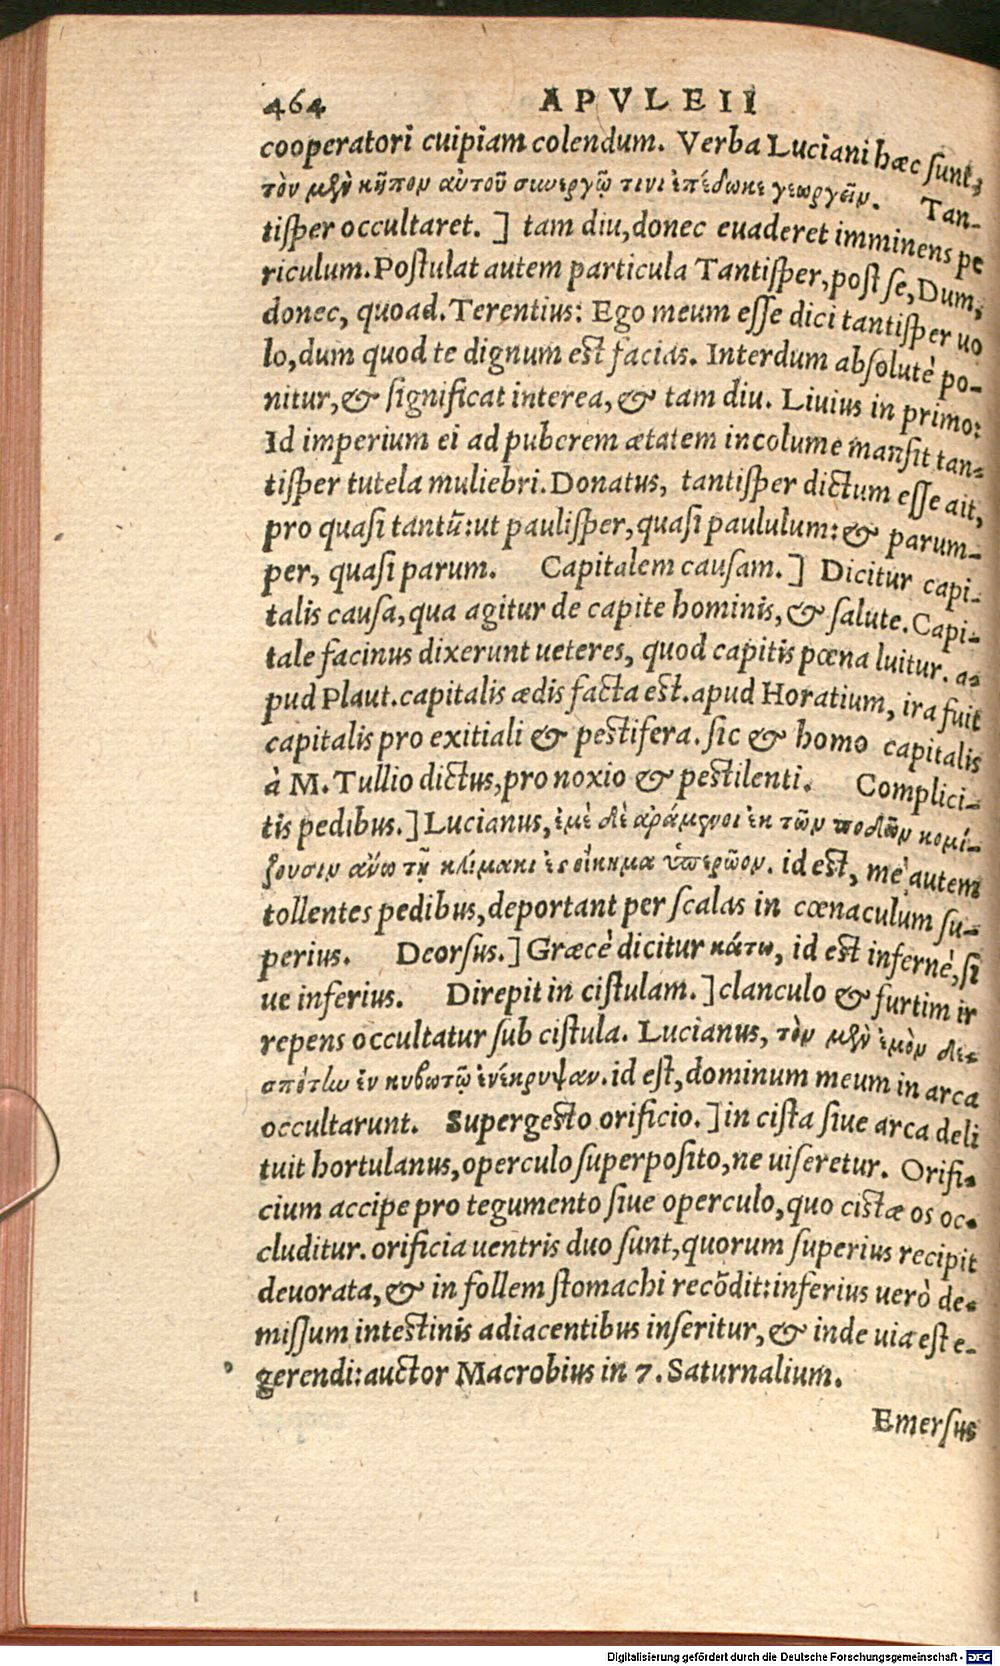 464 APVLEII
cooperatori cuipiam colendum. Verba Luciani hæc sunt,
τὸν μὲν κῆπον αὐτοῦ συνεργῷ τινι ἐπέδωκε γεωργεῖν. Tan-
tisper occultaret. ] tam diu, donec euaderet imminens pe
riculum. Postulat autem particula Tantisper, post se, Dum,
donec, quoad. Terentius: Ego meum esse dici tantisper uo
lo, dum quod te dignum est facias. Interdum absolutè po-
nitur, & significat interea, & tam diu. Liuius in primo:
Id imperium ei ad puberem ætatem incolume mansit tan-
tisper tutela muliebri. Donatus, tantisper dictum esse ait,
pro quasi tantũ: ut paulisper, quasi paululum: & parum-
per, quasi parum. Capitalem causam. ] Dicitur capi-
talis causa, qua agitur de capite hominis, & salute. Capi-
tale facinus dixerunt ueteres, quod capitis pœna luitur. a-
pud Plaut. capitalis ædis facta est. apud Horatium, ira fuit
capitalis pro exitiali & pestifera. sic & homo capitalis
à M. Tullio dictus, pro noxio & pestilenti. Complici-
tis pedibus. ] Lucianus, ἐμὲ δὲ ἀράμενοι ἐκ τῶν ποδῶν κομί-
ζουσιν ἄνω τῇ κλίμακι ἐς οἴκημα ὑπερῶον. id est, me autem
tollentes pedibus, deportant per scalas in cœnaculum su-
perius. Deorsus. ] Græcè dicitur κάτω, id est infernè, si
ue inferius. Direpit in cistulam. ] clanculo & furtim ir
repens occultatur sub cistula. Lucianus, τὸν μὲν ἐμὸν δε-
σπότην ἐν κιβωτῷ ἐνέκρυψαν. id est, dominum meum in arca
occultarunt. Supergesto orificio. ] in cista siue arca deli
tuit hortulanus, operculo superposito, ne uiseretur. Orifi-
cium accipe pro tegumento siue operculo, quo cistæ os oc-
cluditur. orificia uentris duo sunt, quorum superius recipit
deuorata, & in follem stomachi recõdit: inferius uerò de-
missum intestinis adiacentibus inseritur, & inde uia est e-
gerendi: auctor Macrobius in 7. Saturnalium.
Emersus
Digitalisierung gefördert durch die Deutsche Forschungsgemeinschaft - DFG